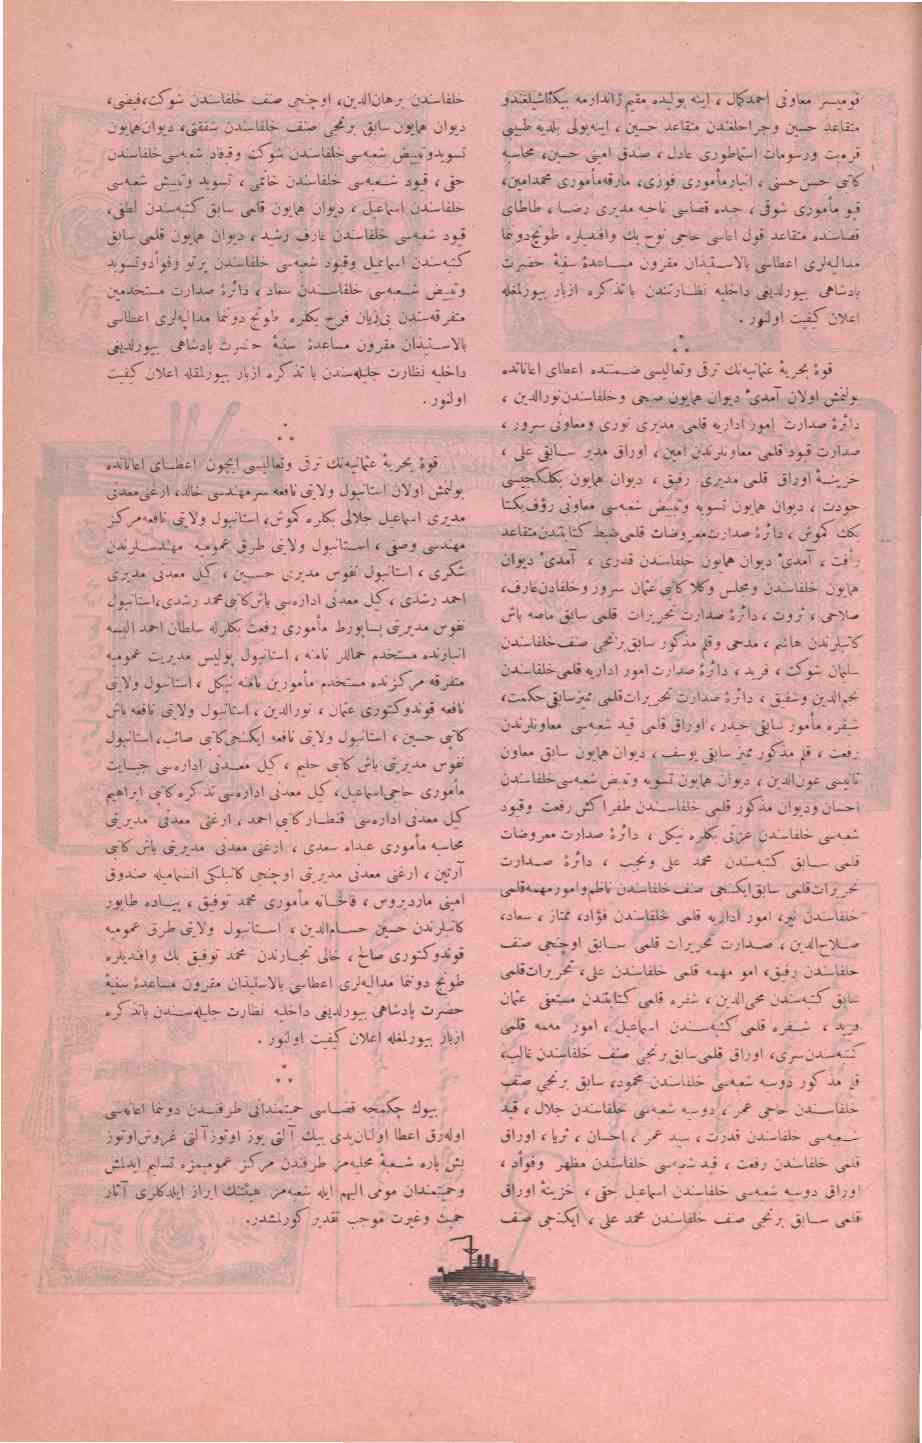 قومیسر معاونی احمد كمال ، اینه بولیده مقیم ژاندارمه بیكباشیلغندن
متقاعد حسین وجراحلغندن متقاعد حسین ، اینه‌بولی بلدیه طبیبی
ورسومات استیماطوری عادل ، صندق امینی حسین، محاسبه
كاتبی حسن حسنی ، انبار مأموری فوزی، مارقه مأموری محمد امین،
قپو مأموری شوقی ، جیده قضاسی ناحیه مدیری رضا ، طاطای
قضاسنده متقاعد قول اغاسی حاجی نوح بك وافندیلره طونج دوننما
مدالیه‌لری اعطاسی بالاستیذان مقرون مساعدهٔ سنیهٔ حضرت
پادشاهی بیورلدیغی داخلیه نظارتندن با تذكره ازبار بیورلمغله
اعلان كیفیت اولنور .
قوهٔ بحریهٔ عثمانیه‌نك ترقی وتعالیسی ضمننده اعطای اعاناتده
بولنمش اولان آمدیٔ دیوان همایون خلفاسندن نورالدین ،
دائرهٔ صدارت امور اداریه قلمی مدیری نوری ومعاونی سرور ،
صدارت قیود قلمی معاونلرندن امین ، اوراق مدیر سابقی علی ،
خزینهٔ اوراق قلمی مدیری رفیق ، دیوان همایون بكلكجیسی
جودت ، دیوان همایون تسویه وتبییض شعبه‌سی معاونی رؤف بكلره
كموش ، دائرهٔ صدارت معروضات قلمی ضبط كتابتندن متقاعد
رأفت ، آمدیٔ دیوان همایون خلفاسندن قدری ، آمدیٔ دیوان
همایون خلفاسندن ومجلس وكلا كاتبی عثمان سرور وخلفادن عارف،
صلاحی ، ثروت ، دائرهٔ صدارت تحریرات قلمی سابق ماصه باش
كاتبلرندن هاشم ، مدحی وقلم مذكور سابق برنجی صنف خلفاسندن
سلمان شوكت ، فرید ، دائرهٔ صدارت امور اداریه قلمی خلفاسندن
نجم‌الدین وشفیق ، دائرهٔ صدارت تحریرات قلمی ممیز سابقی حكمت،
شفره مأمور سابقی حیدر ، اوراق قلمی قید شعبه‌سی معاونلرندن
رفعت ، قلم مذكور ممیز سابقی یوسف ، دیوان همایون سابق معاون
ثانیسی عون‌الدین ، دیوان همایون تسویه وتبییض شعبه‌سی خلفاسندن
احسان ودیوان مذكور قلمی خلفاسندن طغراكش رفعت وقیود
شعبه‌سی خلفاسندن عزتی بكلره نیكل ، دائرهٔ صدارت معروضات
قلمی سابق كتبه‌سندن محمد علی ونجیب ، دائرهٔ صدارت
تحریرات قلمی سابق ایكنجی صنف خلفاسندن ناظم وامور مهمه قلمی
خلفاسندن نیر، امور اداریه قلمی خلفاسندن فؤاد، ممتاز ، سعاد،
صلاح‌الدین ، صدارت تحریرات قلمی سابق اوچنجی صنف
خلفاسندن رفیق، امو مهمه قلمی خلفاسندن علی، تحریرات قلمی
سابق كتبه‌سندن محی‌الدین ، شفره قلمی كتابتندن مستعفی عثمان
فرید ، شفره قلمی كتبه‌سندن اسماعیل ، امور مهمه قلمی
كتبه‌سندن سری، اوراق قلمی سابق برنجی صنف خلفاسندن غالب،
قلم مذكور دوسیه شعبه‌سی خلفاسندن محمود، سابق برنجی صنف
خلفاسندن حاجی عمر ، دوسیه شعبه‌سی خلفاسندن جلال ، قید
شعبه‌سی خلفاسندن قدرت ، سید عمر ، احسان ، ثریا ، اوراق
قلمی خلفاسندن رفعت ، قید شعبه‌سی خلفاسندن مظهر وفؤاد ،
اوراق دوسیه شعبه‌سی خلفاسندن اسماعیل حقی ، خزینهٔ اوراق
قلمی سابق برنجی صنف خلفاسندن محمد علی ، ایكنجی صنف
خلفاسندن برهان‌الدین، اوچنجی صنف خلفاسندن شوكت، فیضی،
دیوان همایون سابق برنجی صنف خلفاسندن شفقتی، دیوان همایون
تسوید وتبییض شعبه‌سی خلفاسندن شوكت شعبه‌سی خلفاسندن
حقی ، قیود شعبه‌سی خلفاسندن خاتمی ، تسوید وتبییض شعبه‌سی
خلفاسندن اسماعیل ، دیوان همایون قلمی سابق كتبه‌سندن لطفی،
قیود شعبه‌سی خلفاسندن عارف رشید ، دیوان همایون قلمی سابق
كتبه‌سندن اسماعیل وقیود شعبه‌سی خلفاسندن پرتو وفوأد وتسوید
وتبییض شعبه‌سی خلفاسندن سعاد ، دائرهٔ صدارت مستخدمین
متفرقه‌سندن فرج بكلره طونج دوننما مدالیه‌لری اعطاسی
بالاستیذان مقرون مساعدهٔ سنیهٔ حضرت پادشاهی بیورلدیغی
داخلیه نظارت جلیله‌سندن با تذكره ازبار بیورلمغله اعلان كیفیت
اولنور .
قوهٔ بحریهٔ عثمانیه‌نك ترقی وتعالیسی ایچون اعطای اعاناتده
بولنمش اولان استانبول ولایتی نافعه سرمهندسی خالد، ارغنی معدنی
مدیری اسماعیل جلالی بكلره كموش، استانبول ولایتی نافعه مركز
مهندسی وصفی ، استانبول ولایتی طرق عمومیه مهندسلرندن
شكری ، استانبول نفوس مدیری حسین ، كبل معدنی مدیری
احمد رشدی ، كبل معدنی اداره‌سی باش كاتبی محمد رشدی، استانبول
نفوس مدیریتی پساپورط مأموری رفعت بكلرله سلطان احمد البسه
انبارنده مستخدم حماللر نامنه ، استانبول پولیس مدیریت عمومیه
متفرقه مركزنده مستخدم مأمورین نامنه نیكل ، استانبول ولایتی
نافعه قوندوكتوری عثمان ، نورالدین ، استانبول ولایتی نافعه باش
كاتبی حسین ، استانبول ولایتی نافعه ایكنجی كاتبی صائب، استانبول
نفوس مدیریتی باش كاتبی حلیم ، كبل معدنی اداره‌سی جبایت
مأموری حاجی اسماعیل، كبل معدنی اداره‌سی تذكره كاتبی ابراهیم
كبل معدنی اداره‌سی قنطار كاتبی احمد ، ارغنی معدنی مدیریتی
محاسبه مأموری عبداه سعدی ، ارغنی معدنی مدیریتی باش كاتبی
آرتین ، ارغنی معدنی مدیریتی اوچنجی كاتبلكی انضمامیله صندوق
امینی ماردیروس ، قالخانه مأموری محمد توفیق ، پیاده طابور
كاتبلرندن حسین حسام‌الدین ، استانبول ولایتی طرق عمومیه
قوندوكتوری صالح ، خالی تجارندن محمد توفیق بك وافندیلره
طونج دوننما مدالیه‌لری اعطاسی بالاستیذان مقرون مساعدهٔ سنیهٔ
حضرت پادشاهی بیورلدیغی داخلیه نظارت جلیله‌سندن باتذكره
ازبار بیورلمغله اعلان كیفیت اولنور .
بیوك چكمجه قضاسی حمیتمندانی طرفندن دوننما اعانه‌سی
اوله‌رق اعطا اولنان یدی بیك آلتی یوز اوتوز آلتی غروش اوتوز
بش پاره شعبهٔ محلیه‌مز طرفندن مركز عمومیمزه تسلیم ایدلمش
وحمیتمندان مومی الیهم ایله شعبه‌مز هیئتنك ابراز ایلدكلری آثار
حمیت وغیرت موجب تقدیر كورلمشدر.